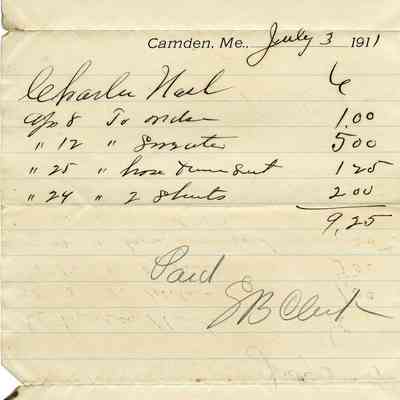 Camden, Me., July 3 1911
Charles Nash
Apr 8 To order 1.00
" 12 " Sweater 5 00
" 25 " hose 1 25
" 24 " 2 Shirts 2 00
9,25
Paid